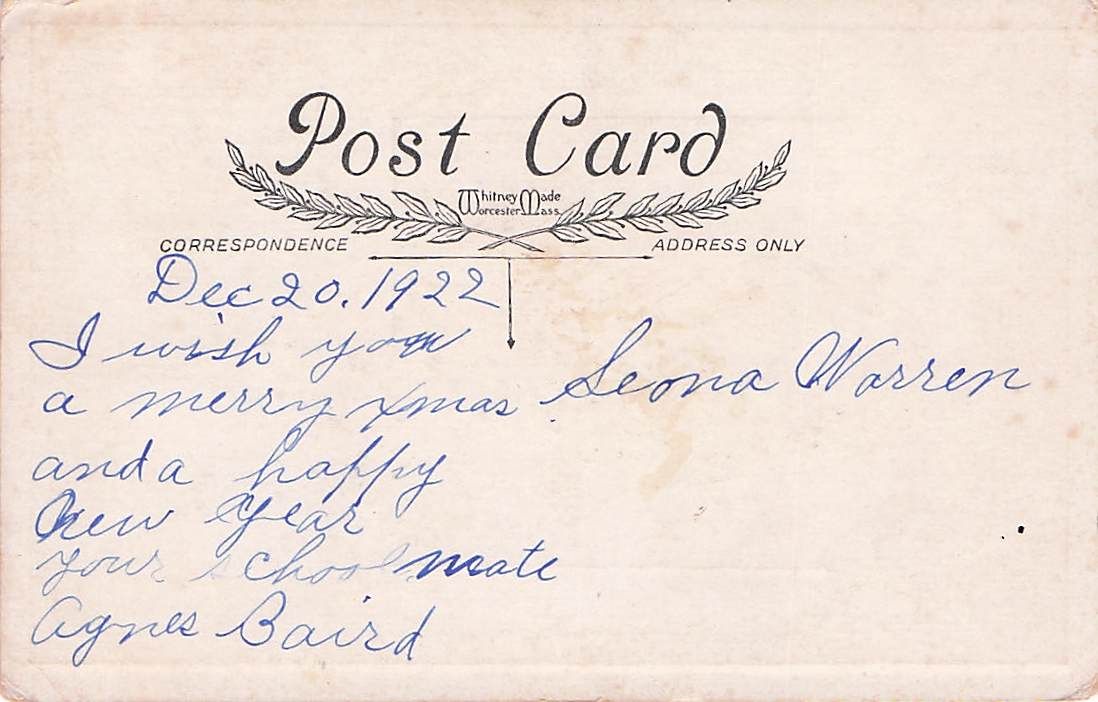 Post Card
Whitney Made
Worcester Mass.
CORRESPONDENCE
ADDRESS ONLY
Dec 20, 1922
I wish you
a merry xmas
and a happy
New Year
your schoolmate
Agnes Baird
Leona Warren